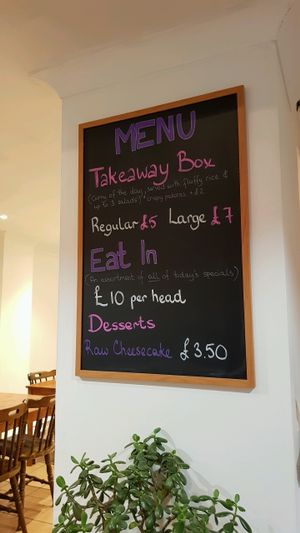 MENU
Takeaway Box
(Curry of the day, served with fluffy rice &
up to 3 salads) * Crispy potatoes + £2
Regular £5 Large £7
Eat In
(An assortment of all of today's specials)
£10 per head
Desserts
Raw Cheesecake £3.50